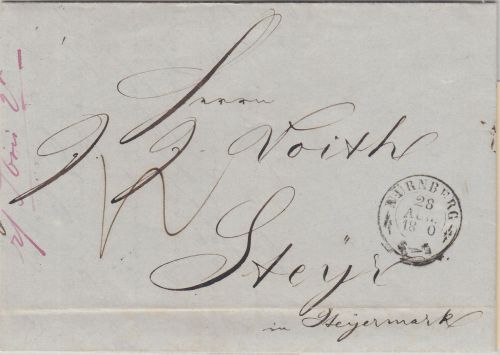 Herrn
J. J. Voith
Steyr
in Steyermark
NÜRNBERG
28
AUG.